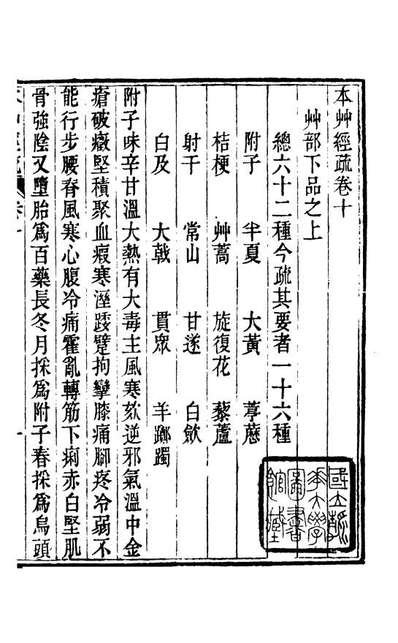 本艸經疏卷十
艸部下品之上
總六十二種今疏其要者一十六種
附子 半夏 大黃 葶藶
桔梗 艸蒿 旋復花 藜蘆
射干 常山 甘遂 白歛
白及 大戟 貫眾 羊躑躅
附子味辛甘溫大熱有大毒主風寒欬逆邪氣溫中金
瘡破癥堅積聚血瘕寒溼踒躄拘攣膝痛腳疼冷弱不
能行步腰脊風寒心腹冷痛霍亂轉筋下痢赤白堅肌
骨強陰又墮胎爲百藥長冬月採爲附子春採爲烏頭